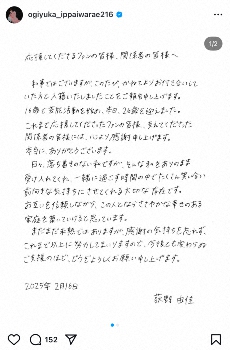 ogiyuka_ippaiwarae216
1/2
応援してくださるファンの皆様、関係者の皆様へ
私事ではございますが、このたび、かねてよりお付き合いして
いた方と入籍いたしましたことをご報告申し上げます。
これまで応援してくださったファンの皆様、支えてくださった
関係者の皆様には、心より感謝申し上げます。
本当にありがとうございます。
受け入れてくれ、一緒に過ごす時間の中でたくさん笑い合い
前向きな気持ちにさせてくれる大切な存在です。
お互いを信頼しながら、この人となら
家庭を築いていけると思っています。
まだまだ未熟ではありますが、感謝の気持ちを忘れず、
これまで以上に努力してまいりますので、今後とも変わらぬ
ご支援のほど、どうぞよろしくお願い申し上げます。
2025年2月16日
荻野由佳
152